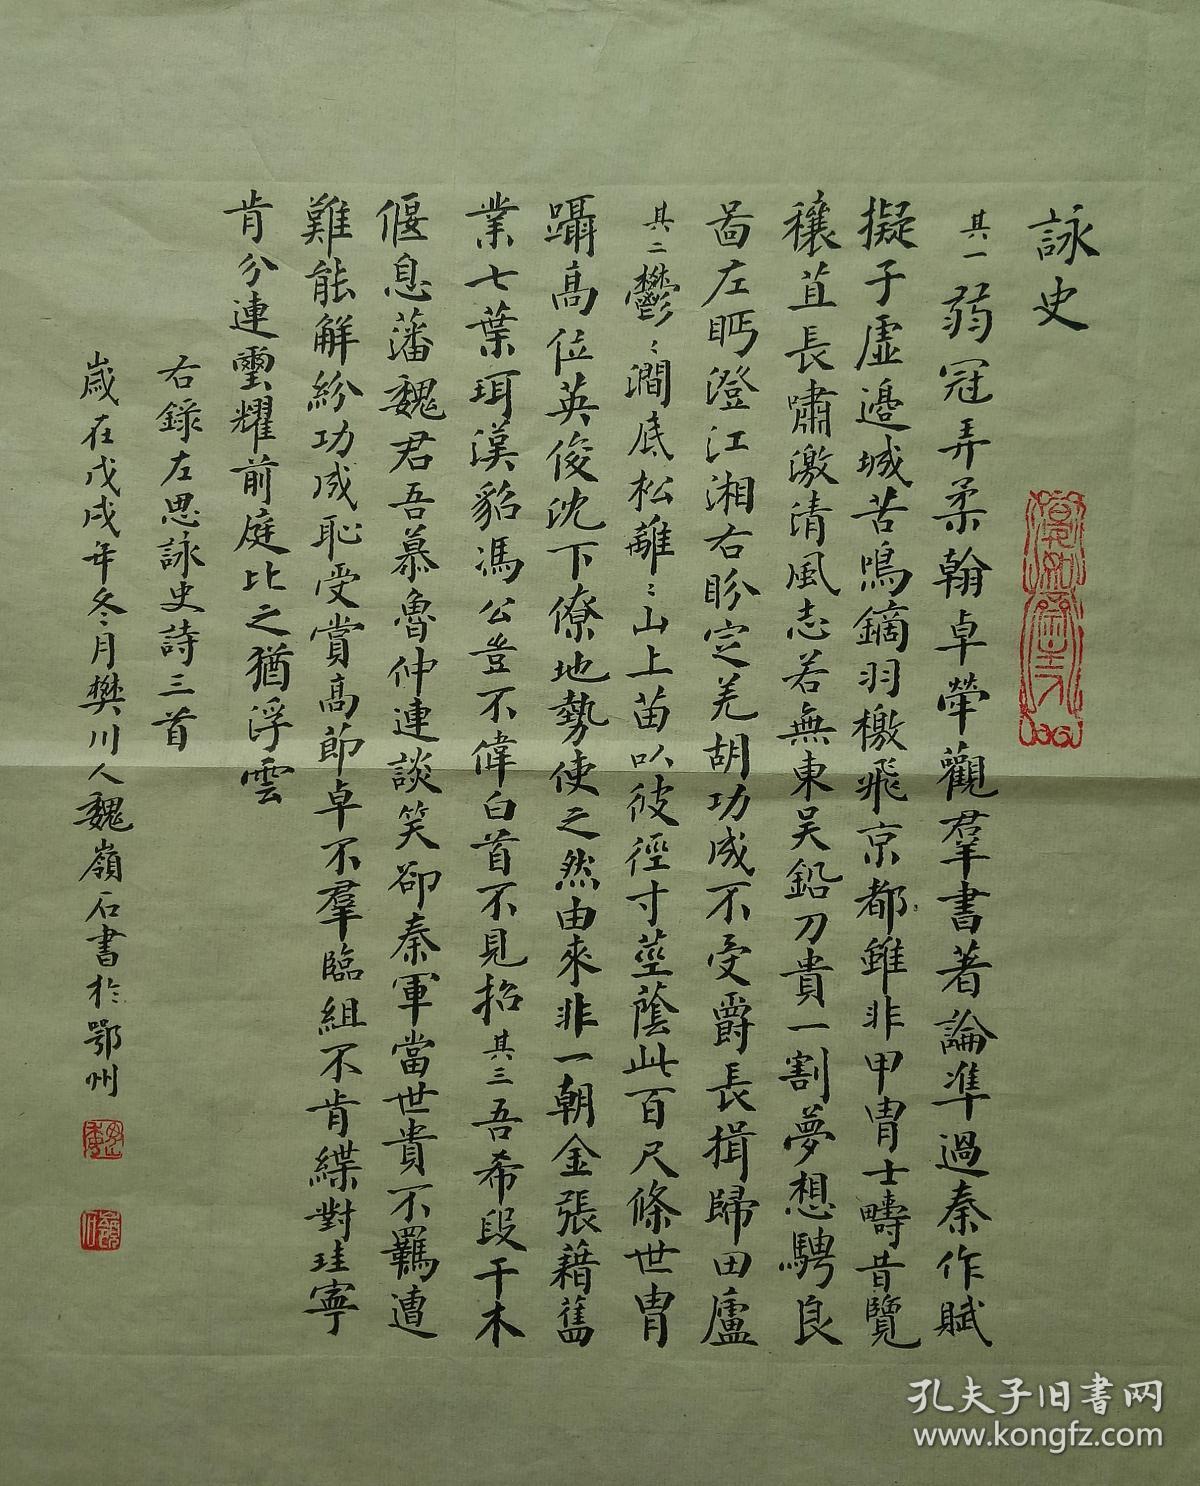 詠史
其一弱冠弄柔翰卓犖觀羣書著論準過秦作賦
擬子虛邊城苦鳴鏑羽檄飛京都雖非甲胄士疇昔覽
穰苴長嘯激清風志若無東吴鉛刀貴一割夢想騁良
啚左眄澄江湘右盼定羌胡功成不受爵長揖歸田廬
其二鬱〻澗底松離〻山上苗以彼徑寸莖蔭此百尺條世胄
躡高位英俊沈下僚地勢使之然由來非一朝金張藉舊
業七葉珥漢貂馮公豈不偉白首不見招其三吾希段干木
偃息藩魏君吾慕魯仲連談笑卻秦軍當世貴不羈遭
難能解紛功成恥受賞高節卓不羣臨組不肯緤對珪寧
肯分連璽耀前庭比之猶浮雲
右錄左思詠史詩三首
歲在戊戌年冬月樊川人魏嶺石書於鄂州
孔夫子旧书网
www.kongfz.com